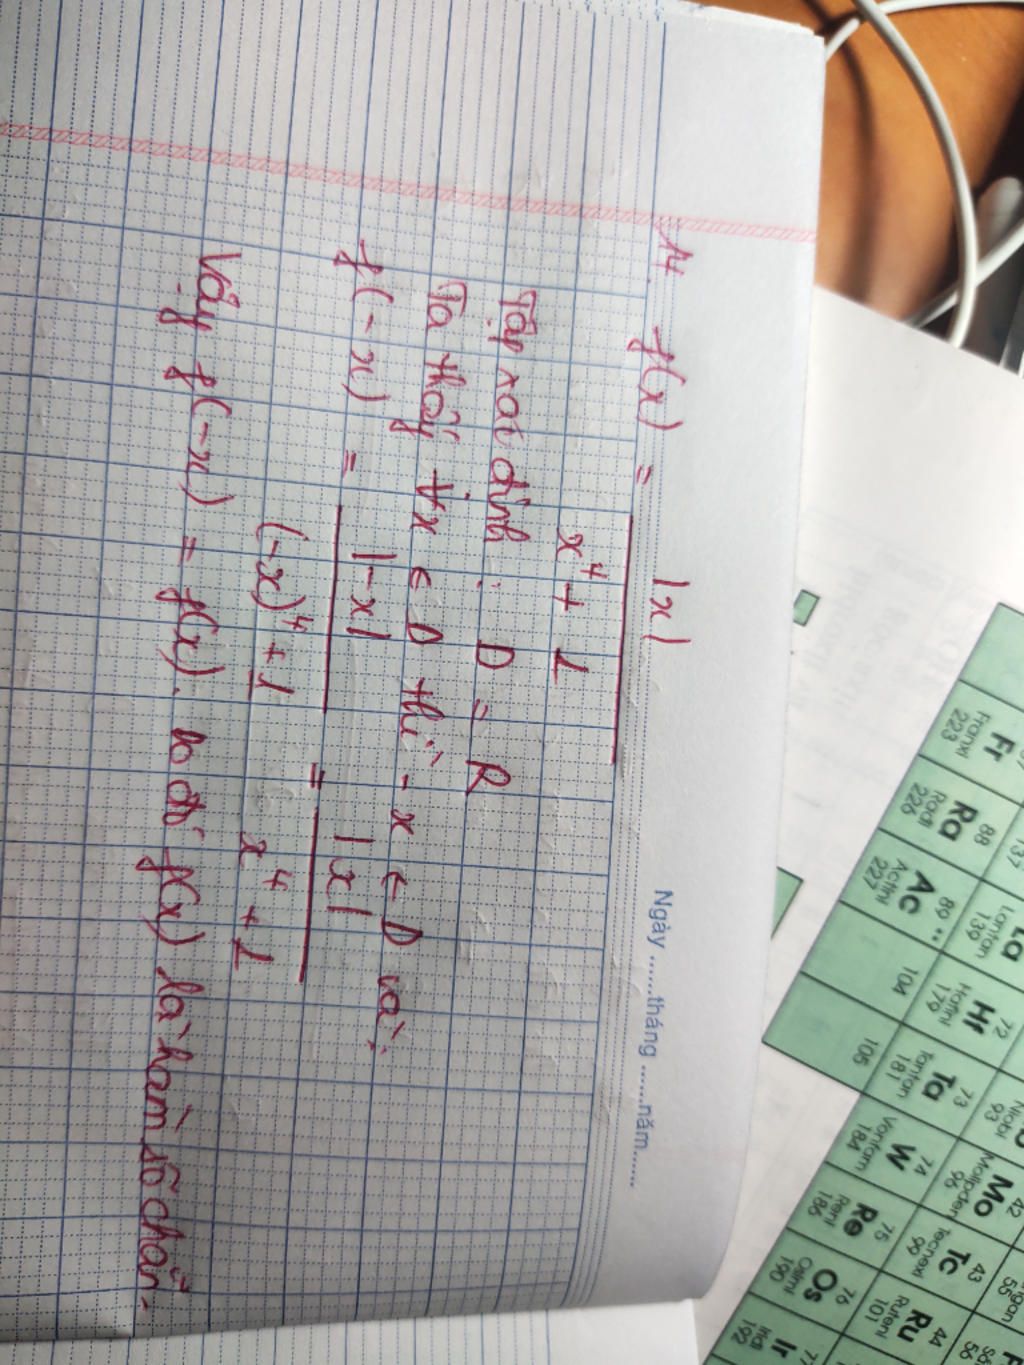 Ngày ......tháng ......năm......
14. f(x) = |x| / x⁴ + 1
Tập xác định : D = R
Ta thấy ∀x ∈ D thì -x ∈ D và:
f(-x) = |-x| / (-x)⁴ + 1 = |x| / x⁴ + 1
Vậy f(-x) = f(x). Do đó f(x) là hàm số chẵn.
Franxi
223
Fr
Rađi
226
88
Ra
137
Actini
227
89 **
Ac
Lantan
139
La
104
Hafni
179
72
Hf
105
Tantan
181
73
Ta
Niobi
93
Vonfam
184
74
W
Molipđen
96
42
Mo
Reni
186
75
Re
Tecnexi
99
43
Tc
55
Osimi
190
76
Os
Ruteni
101
44
Ru
56
Iriđi
192
77
Ir